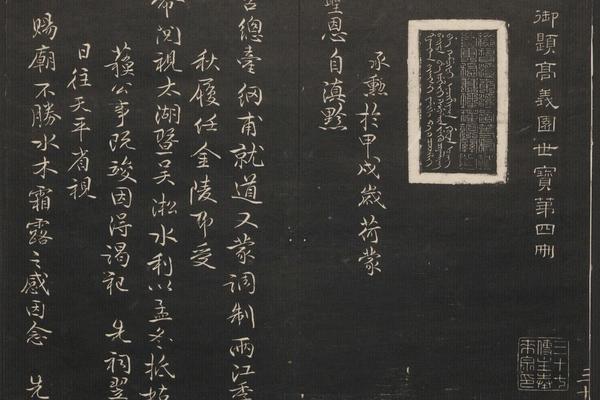 御題高義園世寶第四冊
承勳於甲戌歲荷蒙
聖恩自滇黔
總臺綱甫就道又蒙調制兩江季
秋履任金陵即受
閱視太湖暨吳淞水利以孟冬抵姑
蘇公事既竣因得謁祀 先祠翌
日往天平省視
賜廟不勝水木霜露之感因念 先